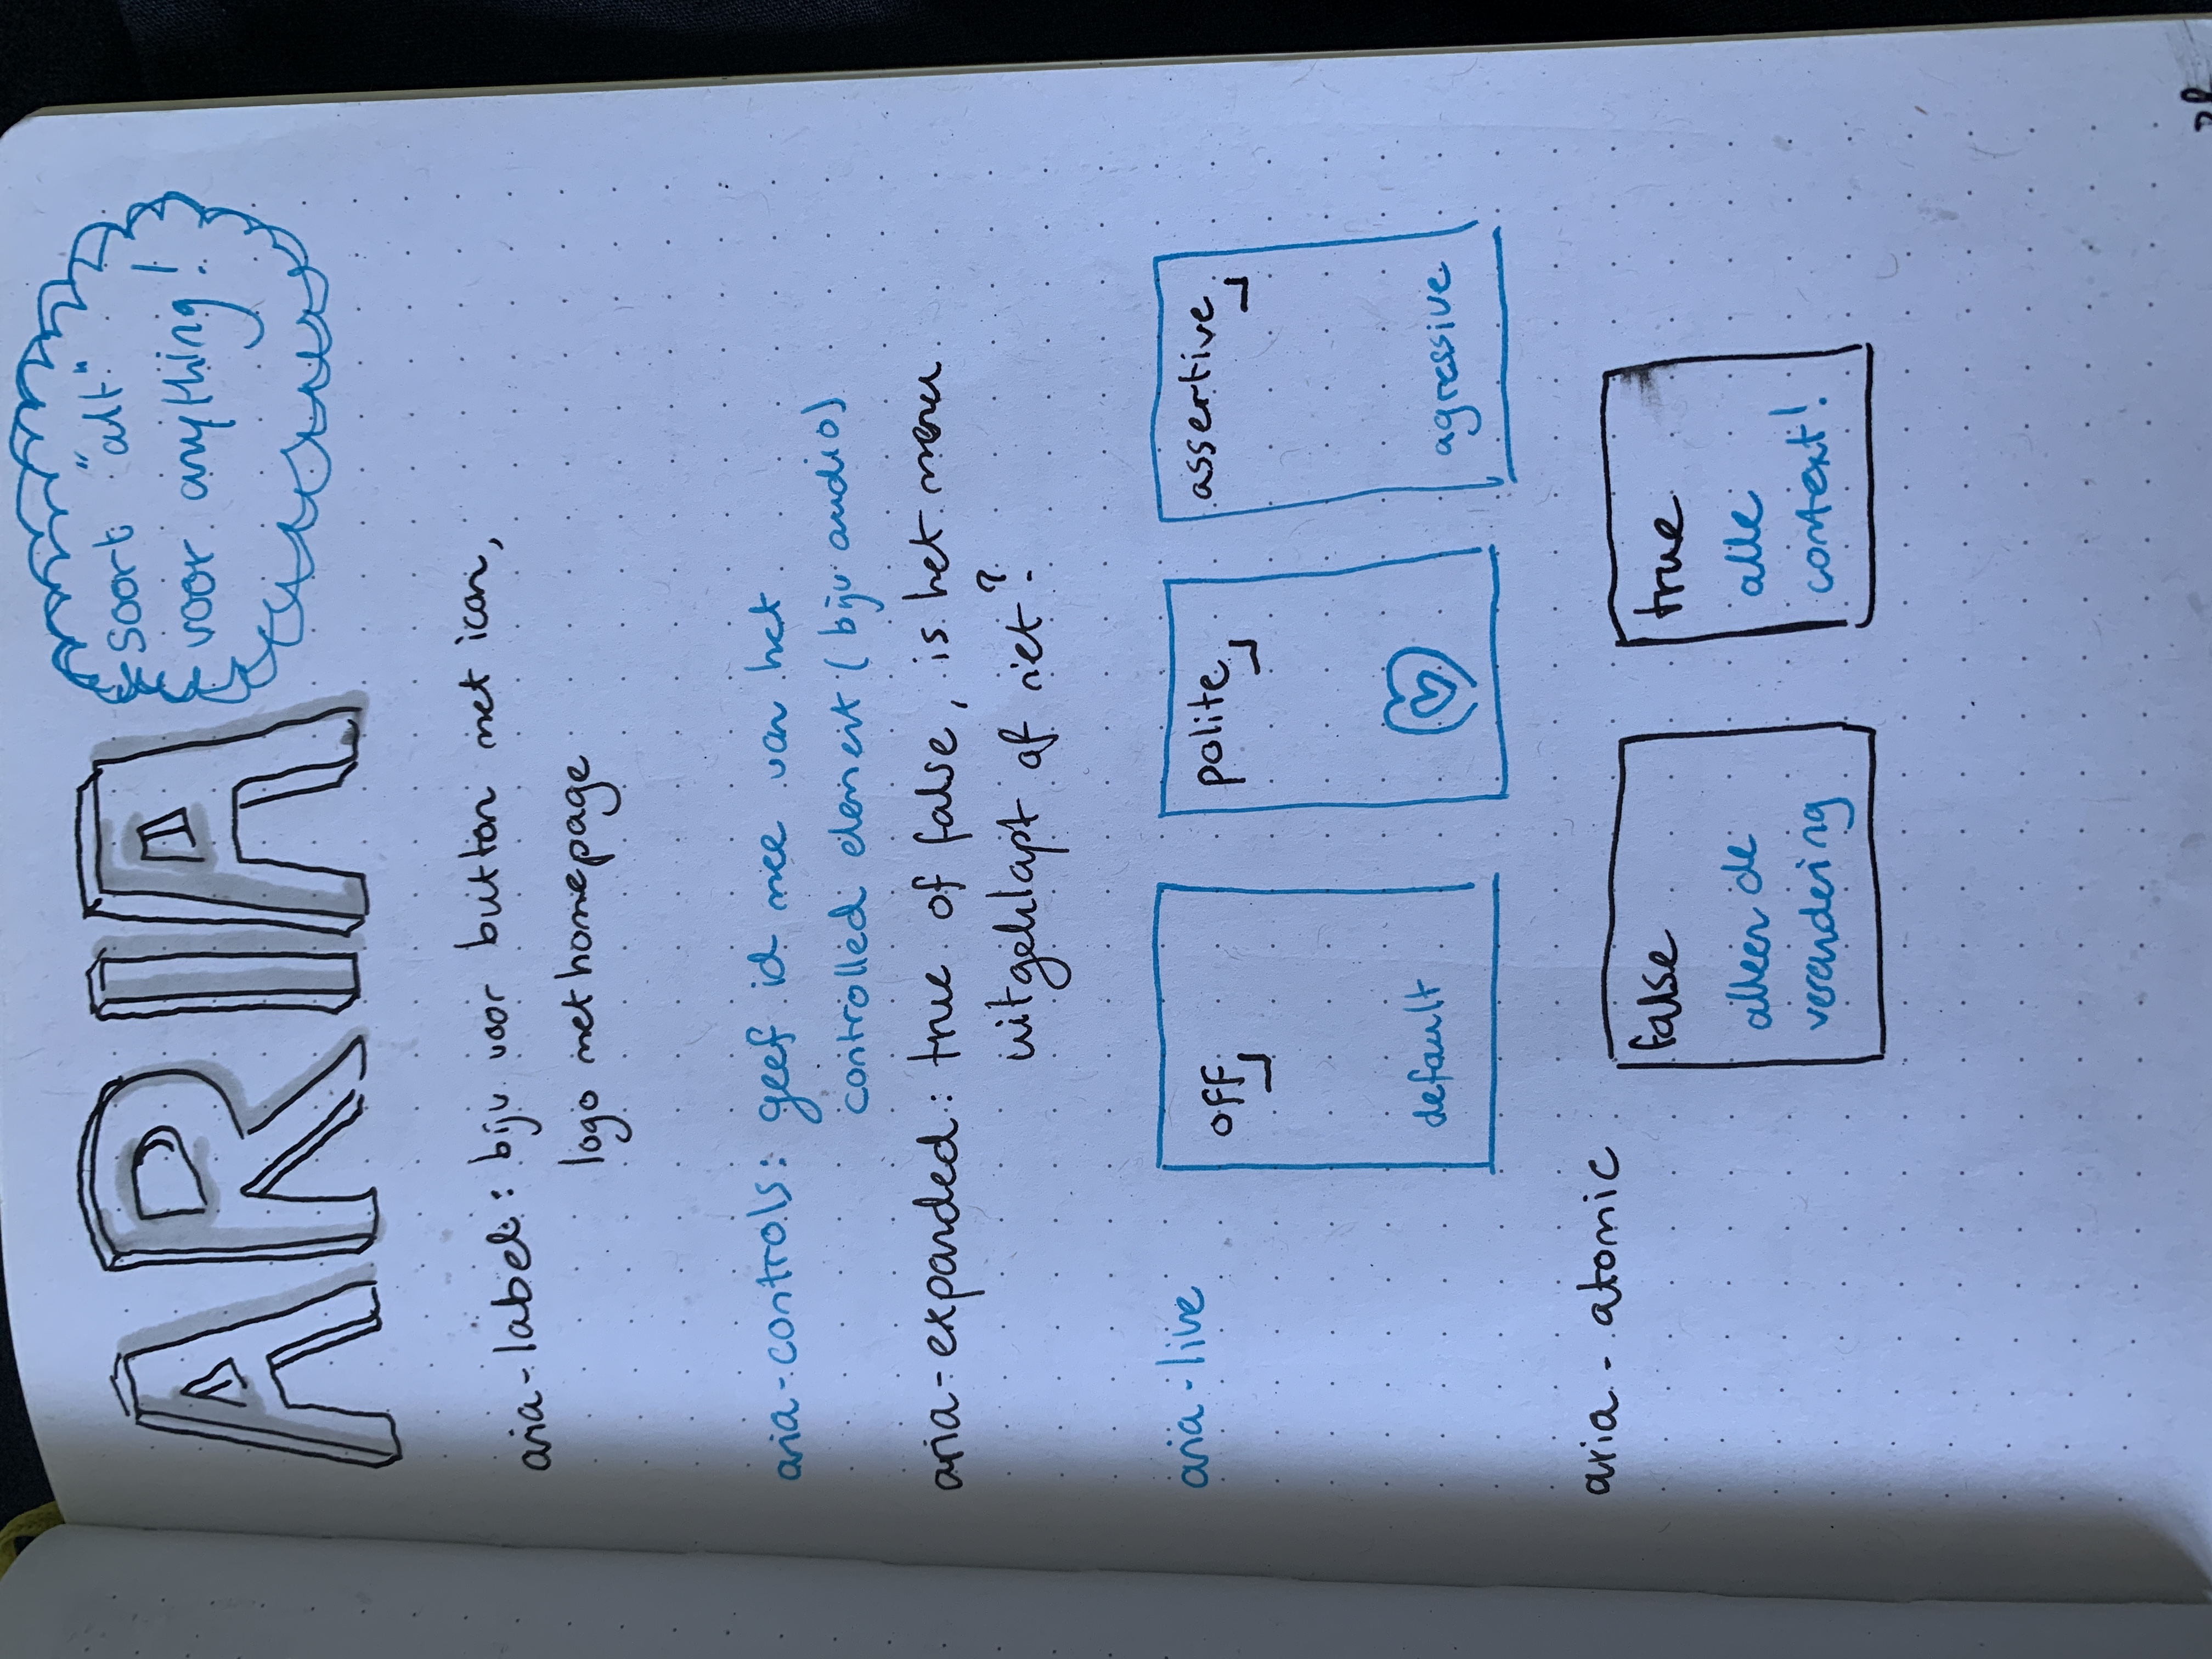 ARIA
soort "alt"
voor anything!
aria-label: bijv voor button met icon,
logo met homepage
aria-controls: geef id mee van het
controlled element (bijv audio)
aria-expanded: true of false, is het menu
uitgeklapt of niet?
aria-live
off
default
polite
assertive
agressive
aria-atomic
false
alleen de
verandering
true
alle
context!